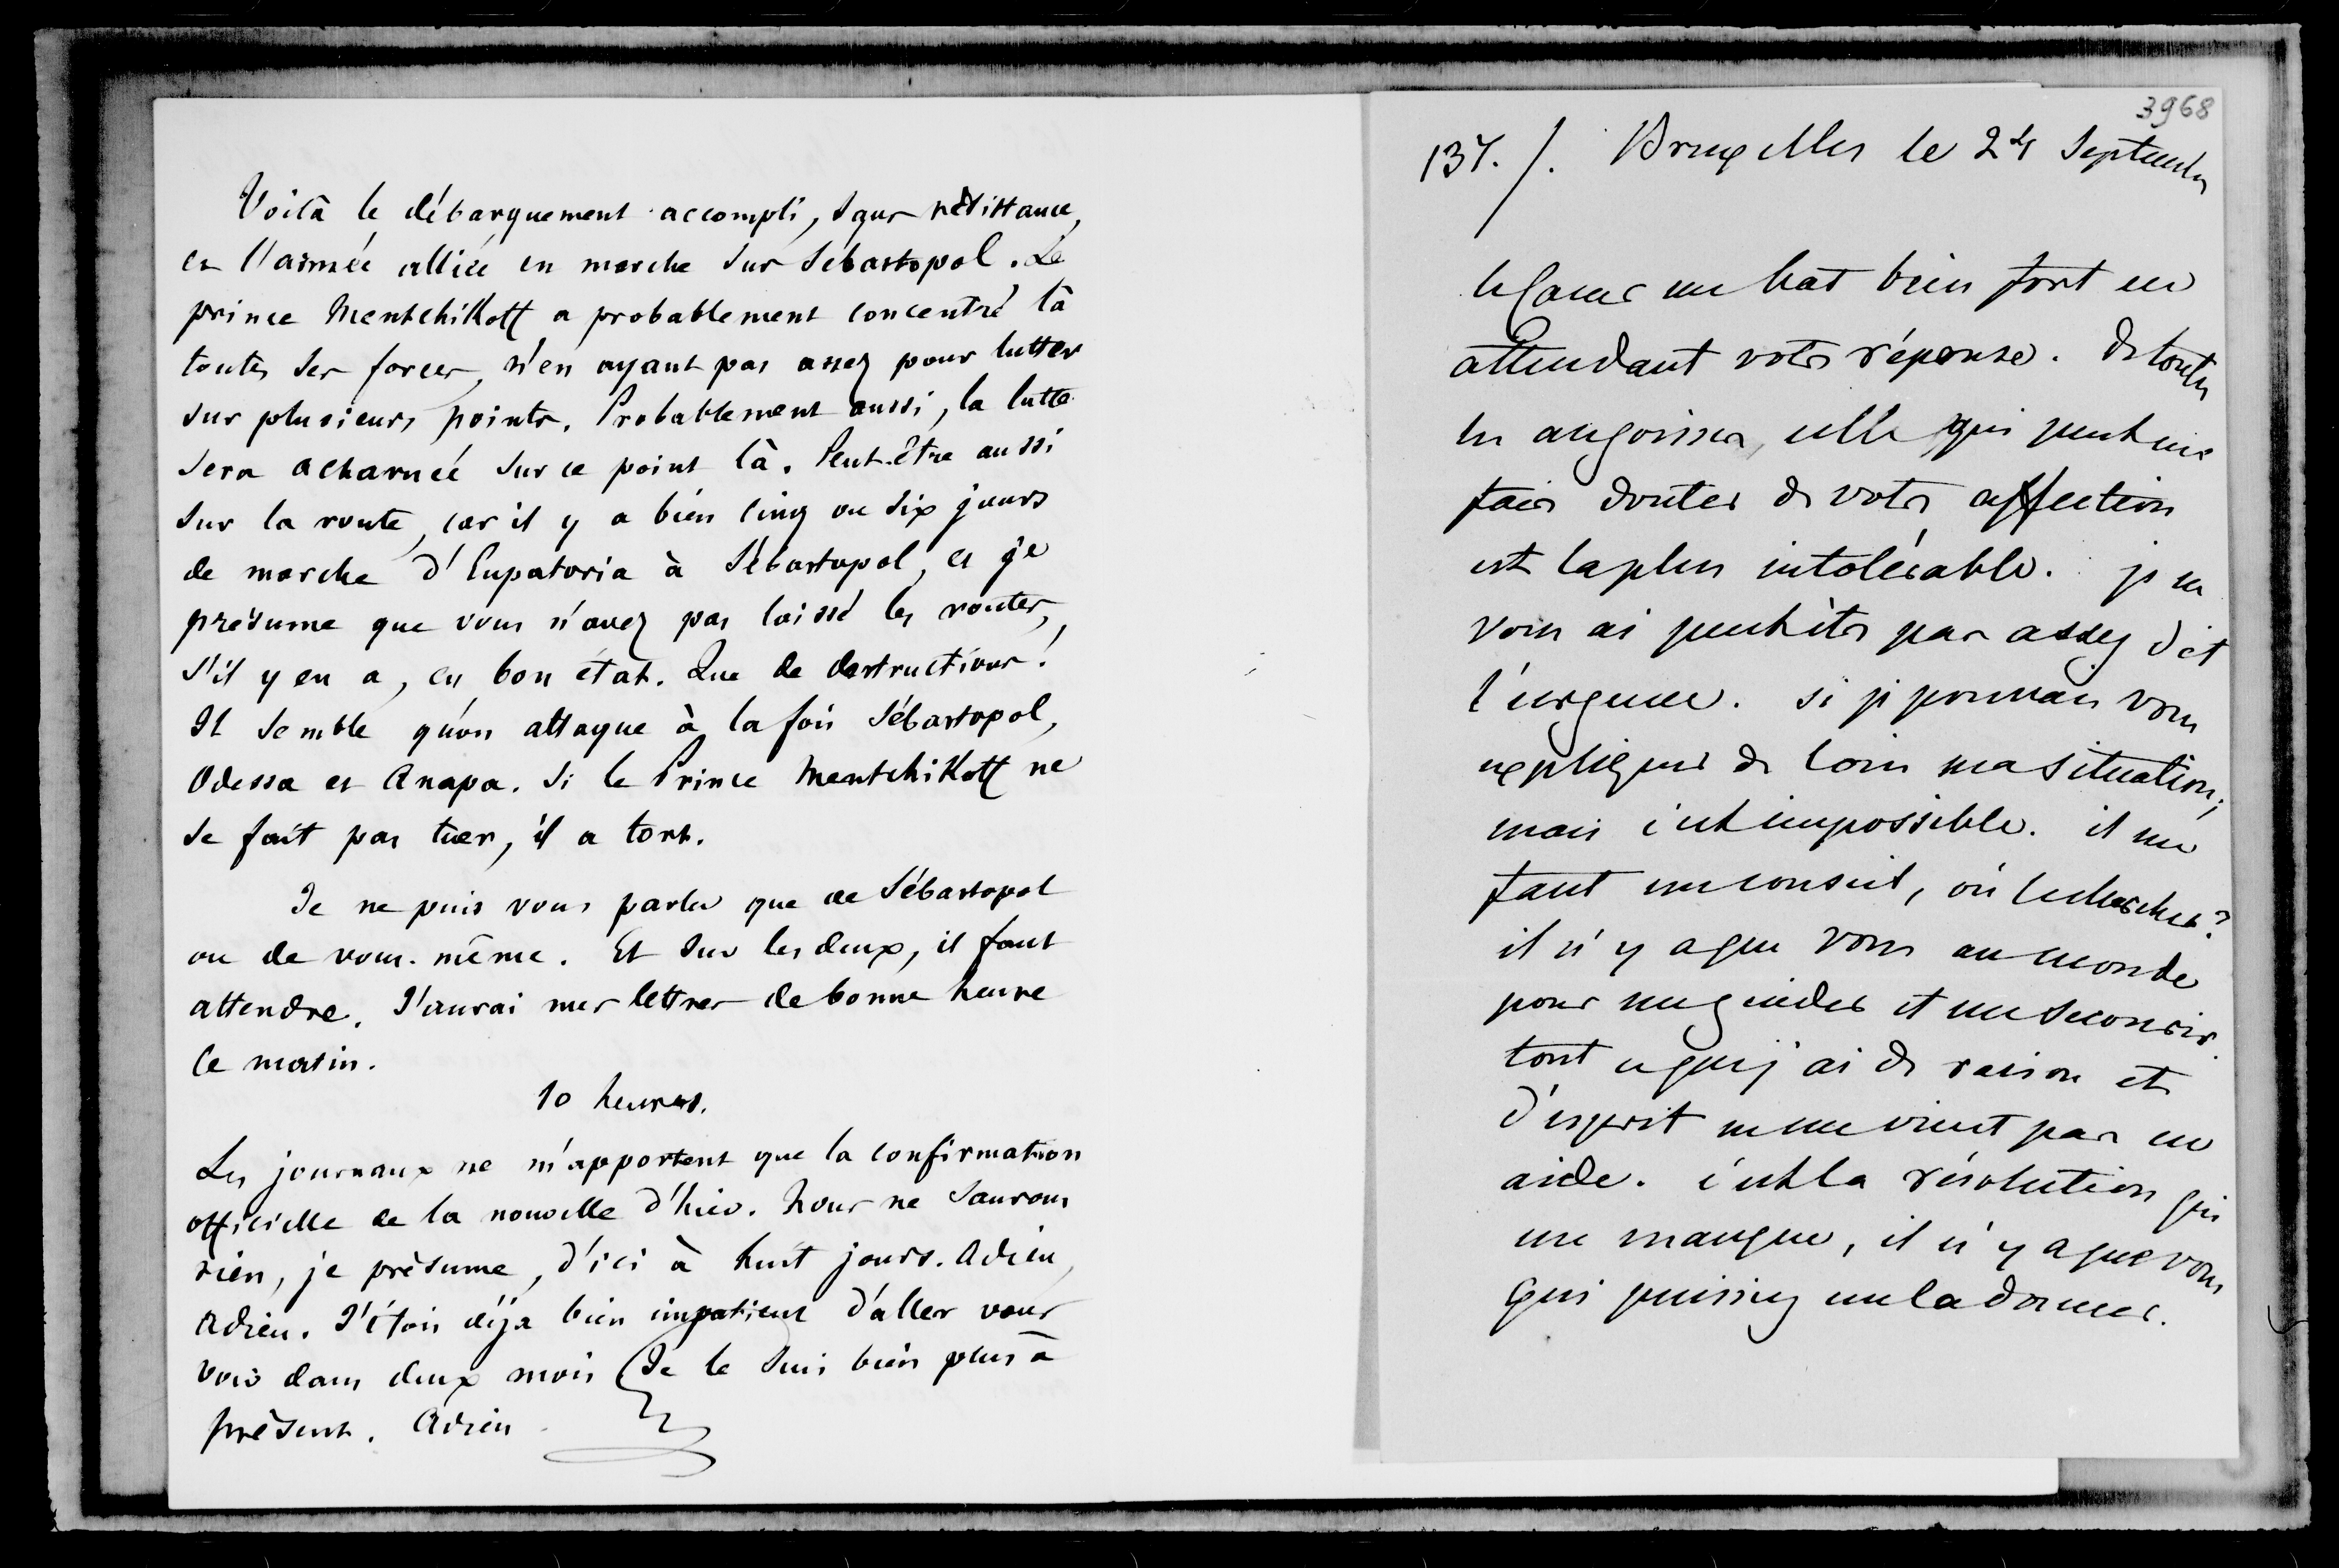 Voilà le débarquement accompli, sans résistance,
et l'armée alliée en marche sur Sébastopol. Le
prince Mentchikoff a probablement concentré là
toutes ses forces, n'en ayant pas assez pour lutter
sur plusieurs points. Probablement aussi, la lutte
sera acharnée sur ce point là. Peut-être aussi
sur la route, car il y a bien cinq ou six jours
de marche d'Eupatoria à Sébastopol, et je
présume que vous n'avez pas laissé les routes,
s'il y en a, en bon état. Que de destructions!
Il semble qu'on attaque à la fois Sébastopol,
Odessa et Anapa. Si le Prince Mentchikoff ne
se fait pas tuer, il a tort.
Je ne puis vous parler que de Sébastopol
ou de vous-même. Et sur les deux, il faut
attendre. J'aurai mes lettres de bonne heure
ce matin.
10 heures.
Les journaux ne m'apportent que la confirmation
officielle de la nouvelle d'hier. Nous ne saurons
rien, je présume, d'ici à huit jours. Adieu,
Adieu. J'étois déja bien impatient d'aller vous
voir dans deux mois. Je le suis bien plus à
présent. Adieu
3968
137. /. Bruxelles le 24 Septembre
le coeur me bat bien fort en
attendant votre réponse. de toutes
les angoisses, celle qui peut me
faire douter de votre affection
est la plus intolérable. je ne
vous ai peut être pas assez dit
l'urgence. si je pouvais vous
expliquer de loin ma situation;
mais c'est impossible. il me
faut un conseil, où le chercher?
il n'y a que vous au monde
pour me guider et me secourir.
tout ce que j'ai de raison et
d'esprit ne me vient pas en
aide. c'est la résolution qui
me manque, il n'y a que vous
qui puissiez me la donner.